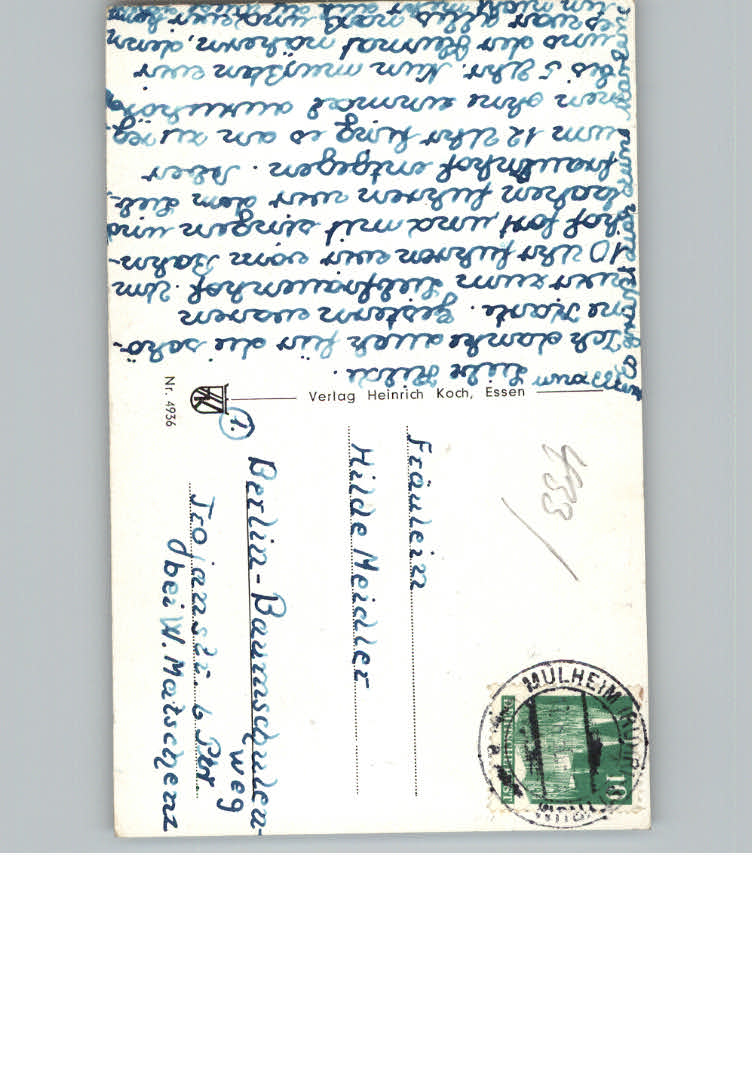 Liebe Hilde.
Ich danke auch für die schö-
ne Karte. Gestern waren
wir zum Liebfrauenhof. Um
10 Uhr fuhren wir vom Bahn-
hof fort, und mit singen und
lachen fuhren wir dem Lieb-
frauenhof entgegen. Aber
um 12 Uhr fing es an zu reg-
nen ohne einmal aufzuhören
bis 5 Uhr. Nun mußten wir
uns der Heimat nähern, denn
es war alles naß und wir
Verlag Heinrich Koch, Essen
Nr. 4936
Fräulein
Hilde Meidler
1. Berlin-Baumschulen-
weg
Trojanstr. 6 Ptr.
bei W. Matschenz
433
MÜLHEIM (RUHR)
10